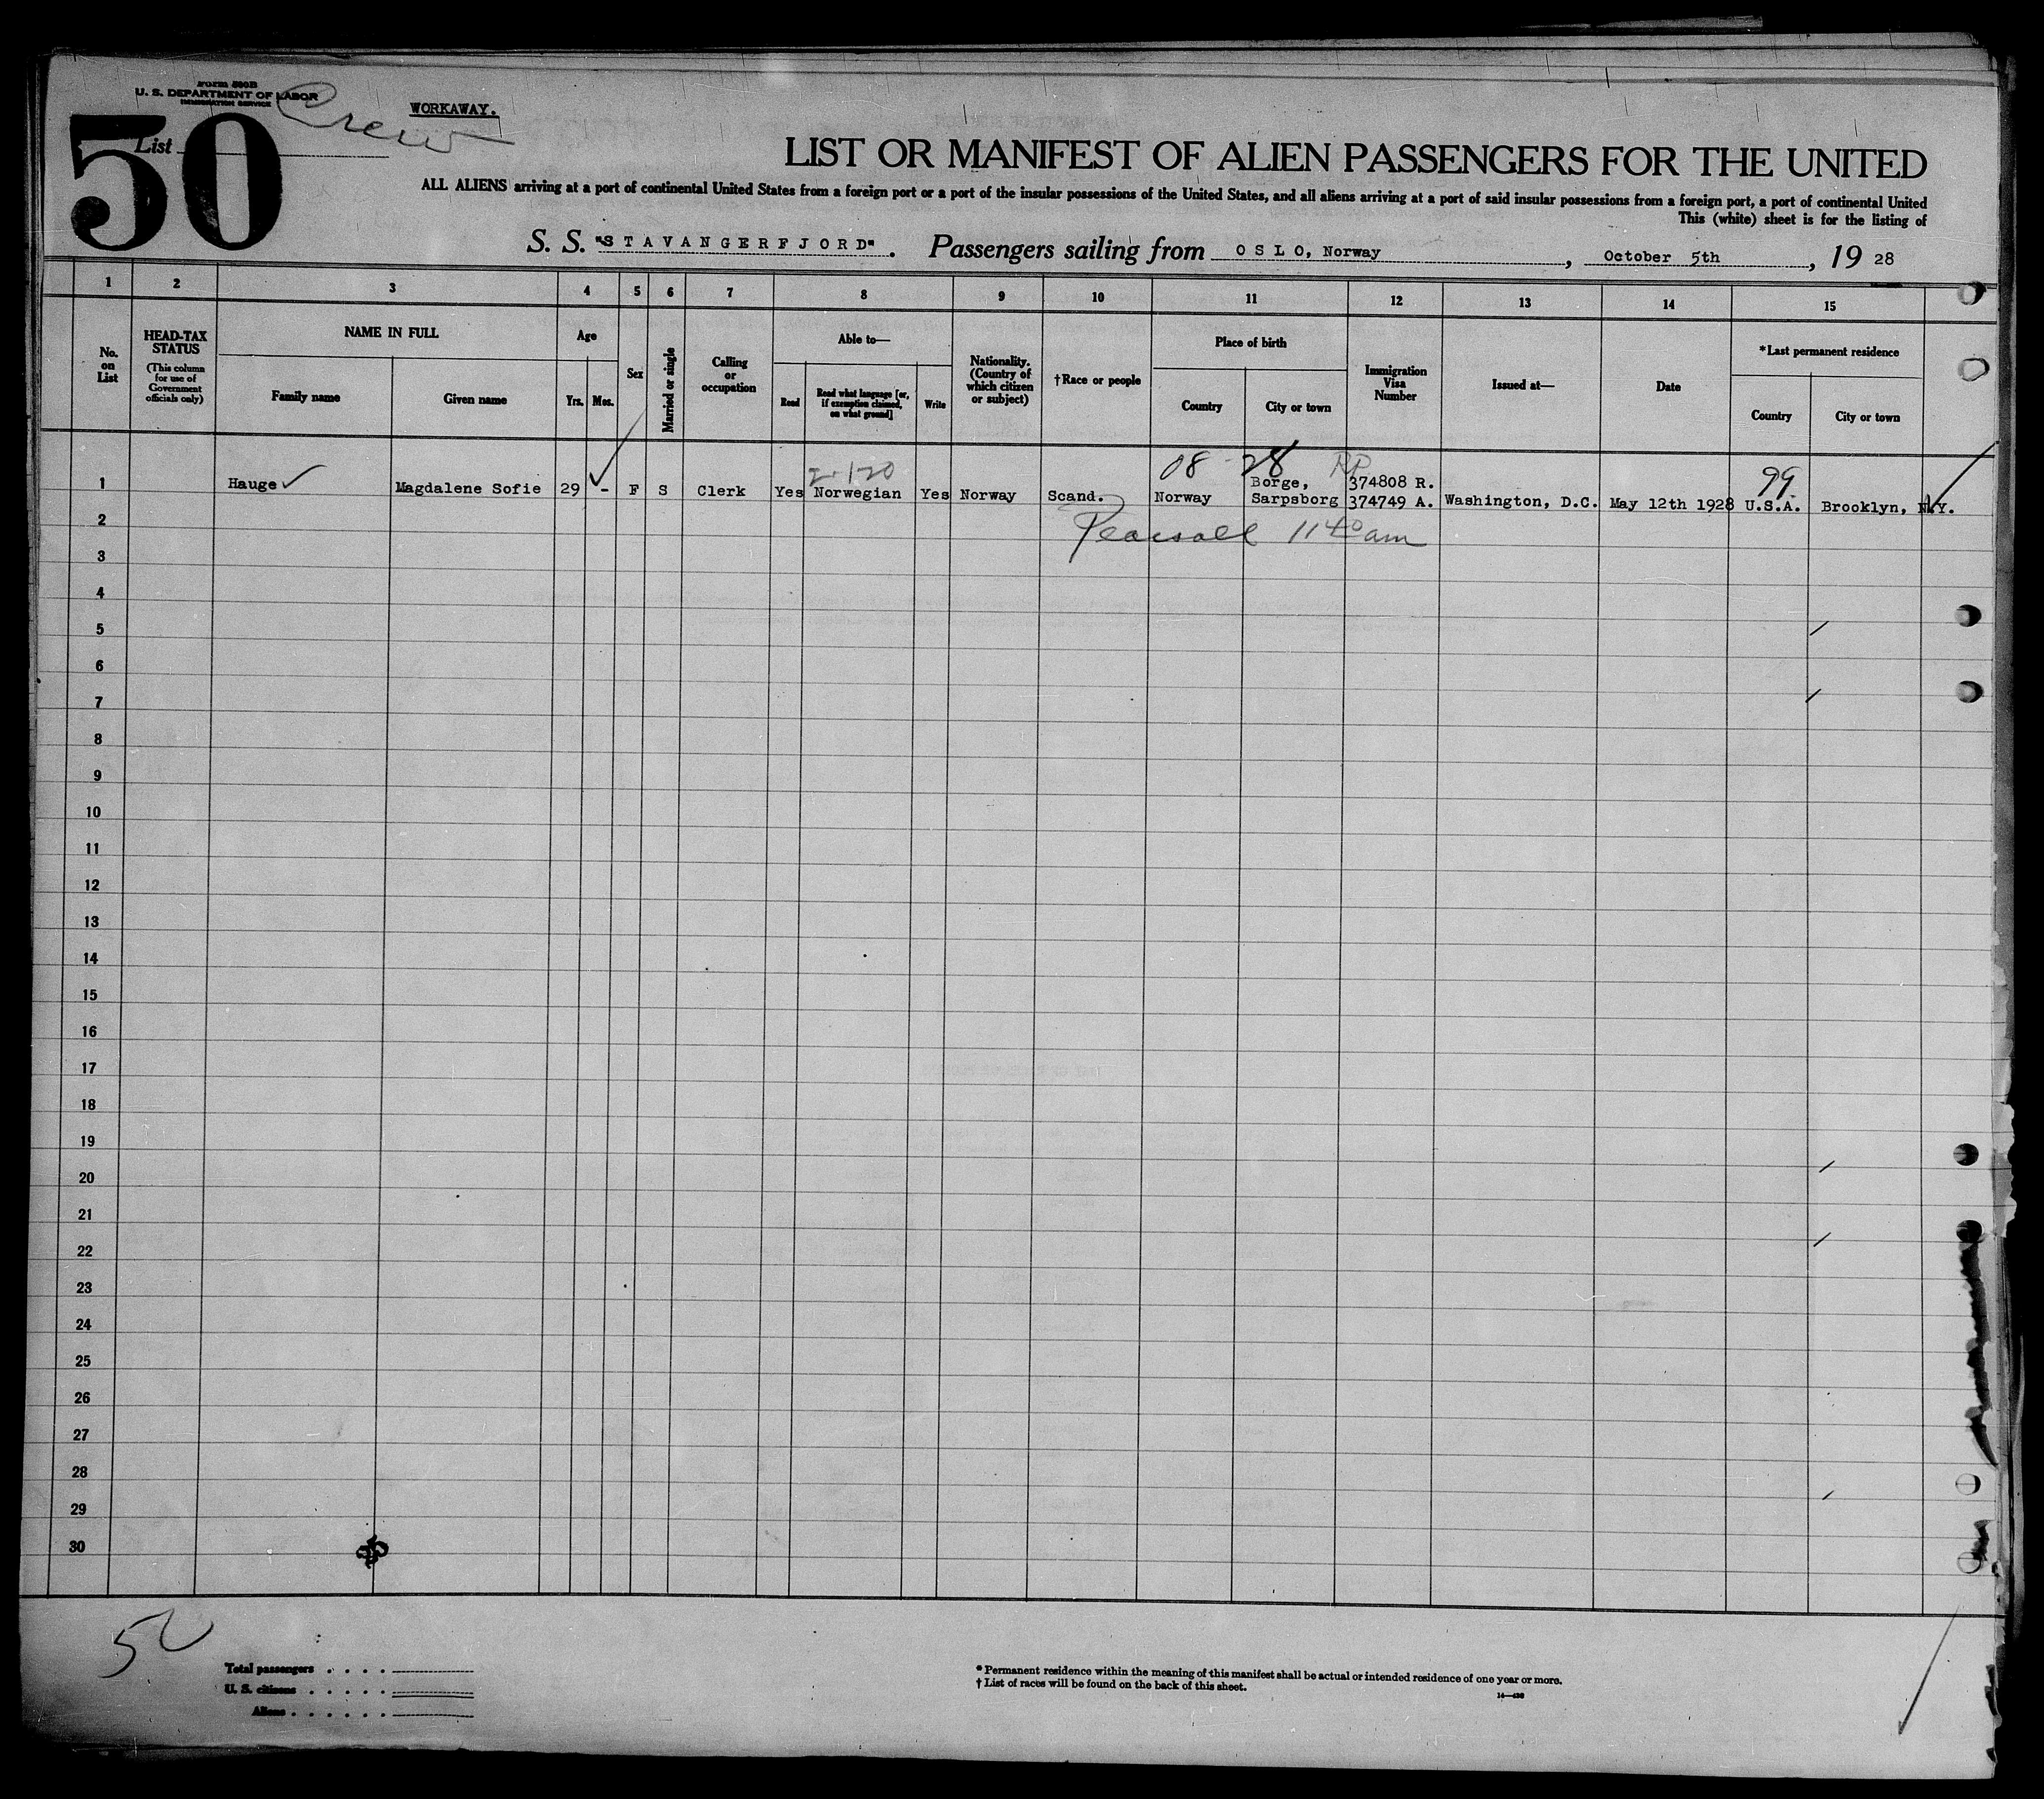 Form 500B
U. S. DEPARTMENT OF LABOR
IMMIGRATION SERVICE
Crew
WORKAWAY.
50
List
LIST OR MANIFEST OF ALIEN PASSENGERS FOR THE UNITED
ALL ALIENS arriving at a port of continental United States from a foreign port or a port of the insular possessions of the United States, and all aliens arriving at a port of said insular possessions from a foreign port, a port of continental United
This (white) sheet is for the listing of
S. S. "STAVANGERFJORD". Passengers sailing from OSLO, Norway, October 5th, 19 28
1 2 3 4 5 6 7 8 9 10 11 12 13 14 15
No. on List
HEAD-TAX STATUS
(This column for use of Government officials only)
NAME IN FULL
Family name Given name
Age
Yrs. Mos.
Sex
Married or single
Calling or occupation
Able to—
Read
Read what language [or, if exemption claimed, on what ground]
Write
Nationality. (Country of which citizen or subject)
†Race or people
Place of birth
Country City or town
Immigration Visa Number
Issued at—
Date
*Last permanent residence
Country City or town
2-120 08 28 RP 99
1 Hauge Magdalene Sofie 29 - F S Clerk Yes Norwegian Yes Norway Scand. Norway Borge, Sarpsborg 374808 R. 374749 A. Washington, D.C. May 12th 1928 U.S.A. Brooklyn, N.Y.
Pearsall 1140 am
2
3
4
5
6
7
8
9
10
11
12
13
14
15
16
17
18
19
20
21
22
23
24
25
26
27
28
29
30
50
Total passengers . . . .
U. S. citizens . . . . .
Aliens . . . . . .
* Permanent residence within the meaning of this manifest shall be actual or intended residence of one year or more.
† List of races will be found on the back of this sheet.